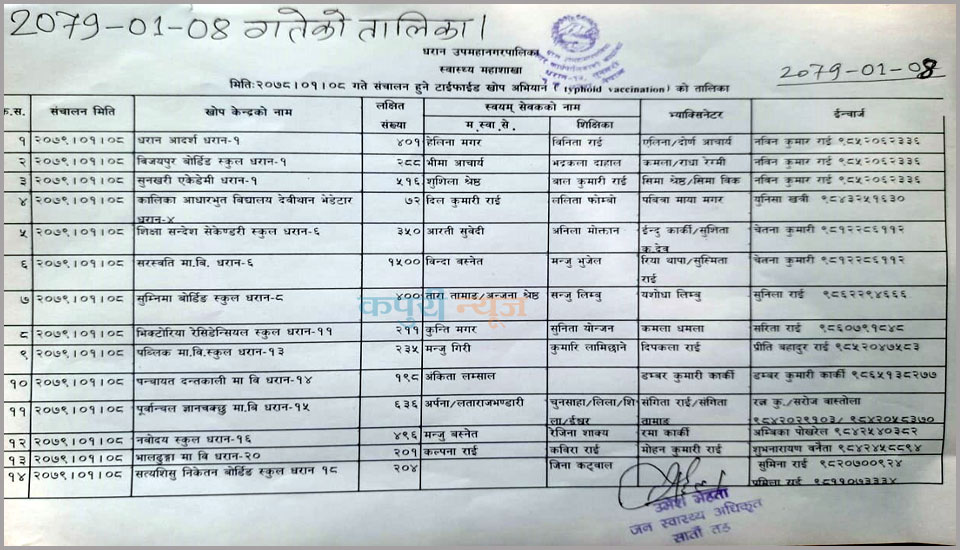 2079-01-08 गतेको तालिका।
धरान उपमहानगरपालिका
स्वास्थ्य महाशाखा
2079-01-08
मिति:२०७८।०१।०८ गते संचालन हुने टाईफाईड खोप अभियान (typhoid vaccination) को तालिका
क्र.स. संचालन मिति खोप केन्द्रको नाम लक्षित संख्या स्वयम् सेवकको नाम भ्याक्सिनेटर ईन्चार्ज
म.स्वा.से. शिक्षिका
१ २०७९।०१।०८ धरान आदर्श धरान-१ ४०१ हेलिना मगर विनिता राई एलिना/दोर्ण आचार्य नविन कुमार राई ९८५२०६२३३६
२ २०७९।०१।०८ विजयपुर बोर्डिङ स्कुल धरान-१ २८८ भीमा आचार्य भद्रकला दाहाल कमला/राधा रेग्मी नविन कुमार राई ९८५२०६२३३६
३ २०७९।०१।०८ सुनखरी एकेडेमी धरान-१ ५१६ शुशिला श्रेष्ठ बाल कुमारी राई सिमा श्रेष्ठ/सिमा विक नविन कुमार राई ९८५२०६२३३६
४ २०७९।०१।०८ कालिका आधारभुत विद्यालय देवीथान भेडेटार धरान-४ ७२ दिल कुमारी राई ललिता फोम्वो पवित्रा माया मगर युनिसा खत्री ९८४३२५९६३०
५ २०७९।०१।०८ शिक्षा सन्देश सेकेण्डरी स्कुल धरान-६ ३५० आरती सुवेदी अनिला मोक्तान ईन्दु कार्की/सुशिता क.देव चेतना कुमारी ९८१२२८६११२
६ २०७९।०१।०८ सरस्वति मा.बि. धरान-६ १५०० विन्दा बस्नेत मन्जु भुजेल रिया थापा/सुस्मिता राई चेतना कुमारी ९८१२२८६११२
७ २०७९।०१।०८ सुम्निमा बोर्डिङ स्कुल धरान-८ ४०० तारा तामाङ/अन्जना श्रेष्ठ सन्जु लिम्बु यशोधा लिम्बु सुनिला राई ९८६२२९४६६६
कपुरी न्यूज
८ २०७९।०१।०८ भिक्टोरिया रेसिडेन्सियल स्कुल धरान-११ २११ कुन्ति मगर सुनिता योन्जन कमला धमला सरिता राई ९८६०७९१८४८
९ २०७९।०१।०८ पब्लिक मा.वि.स्कुल धरान-१३ २३५ मन्जु गिरी कुमारि लामिछाने दिपकला राई प्रीति बहादुर राई ९८५२०४७५८३
१० २०७९।०१।०८ पन्चायत दन्तकाली मा बि धरान-१४ १९८ अंकिता लम्साल डम्बर कुमारी कार्की डम्बर कुमारी कार्की ९८६५१३८२७७
११ २०७९।०१।०८ पूर्वान्चल ज्ञानचक्षु मा.बि धरान-१५ ६३६ अर्पना/लताराजभण्डारी चुनसाहा/लिला/शिला/ईश्वर संगिता राई/संगिता तामाङ रत्न कु./सरोज वास्तोला ९८४२०२९१०३/ ९८४२०५८३७०
१२ २०७९।०१।०८ नवोदय स्कुल धरान-१६ ४९६ मन्जु बस्नेत रेजिना शाक्य रमा कार्की अम्बिका पोखरेल ९८४२५४०३८२
१३ २०७९।०१।०८ भालढुङ्गा मा बि धरान-२० २०१ कल्पना राई कविरा राई मोहन कुमारी राई शुभनारायण वनैता ९८४२४५८५९४
१४ २०७९।०१।०८ सत्यशिसु निकेतन बोर्डिङ स्कुल धरान १८ २०४ जिना कट्वाल सुमिना राई ९८२०७००९२४
प्रमिला राई ९८११०७३३३४
उमेश मेहता
जन स्वास्थ्य अधिकृत
सातौ तह